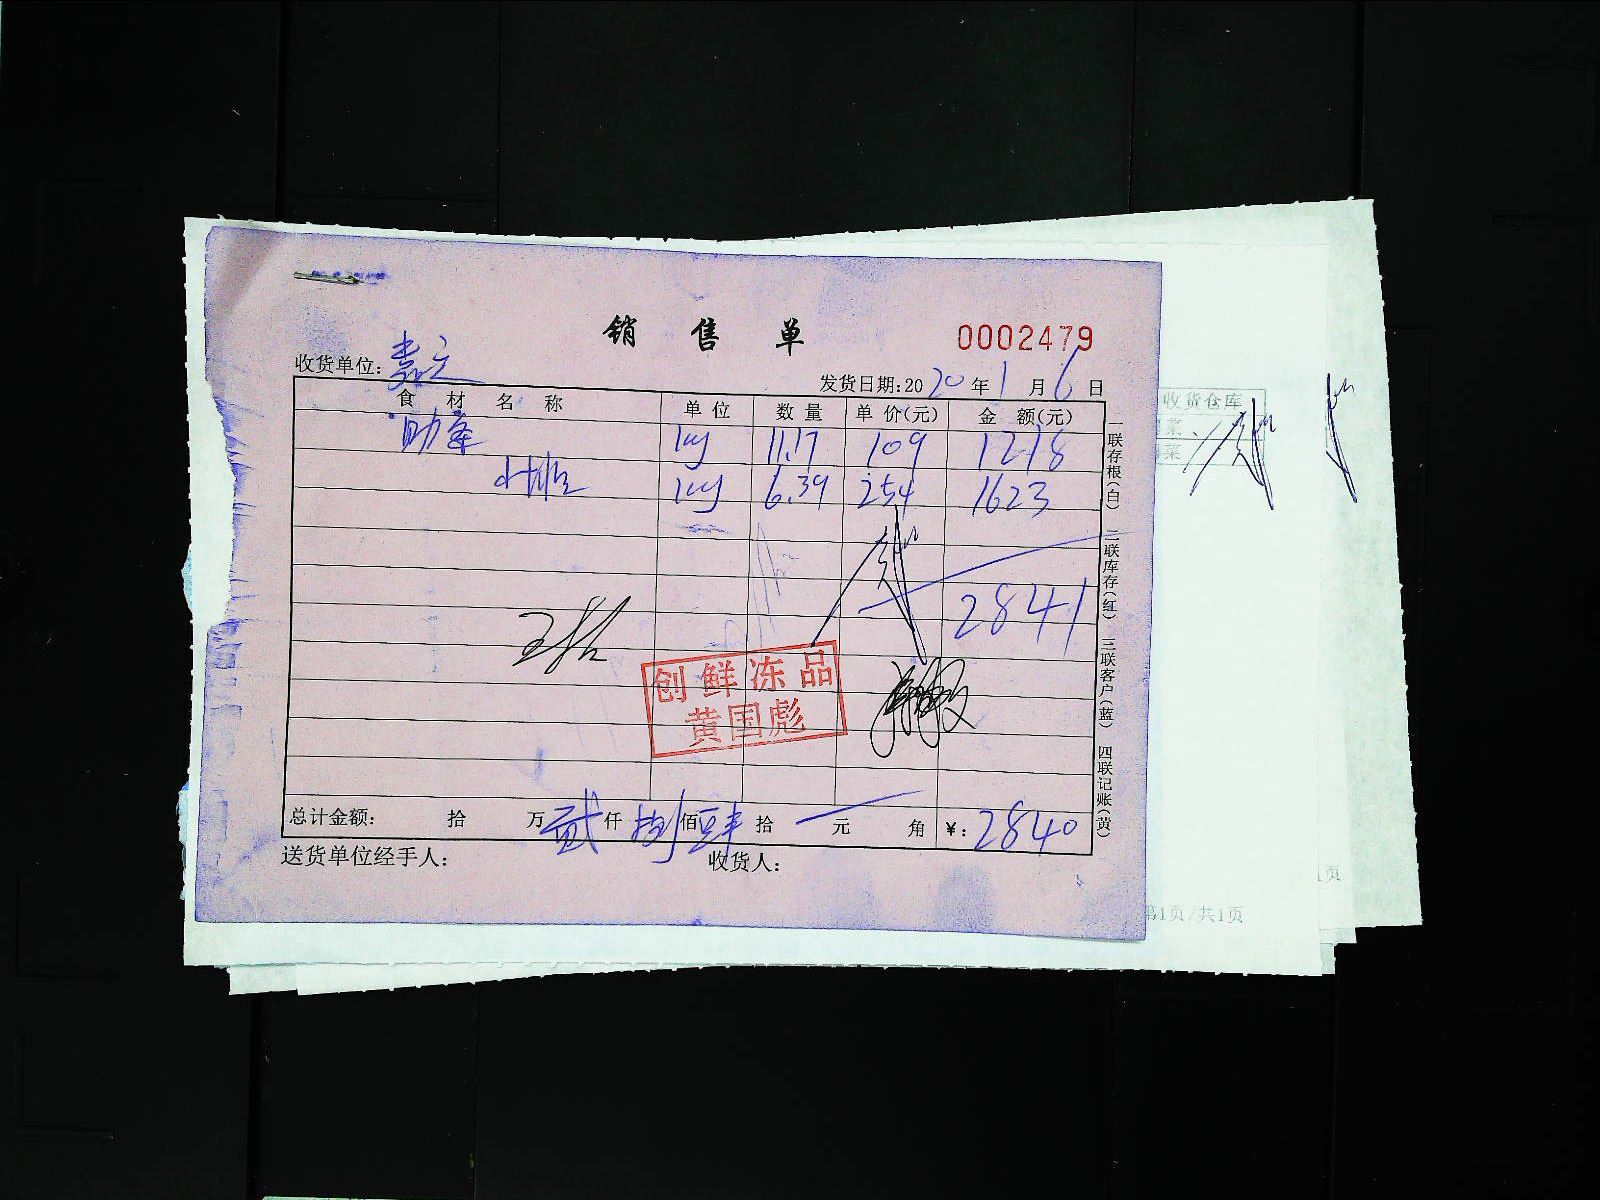 销 售 单
0002479
收货单位:嘉立
发货日期:2020年1月6日
食 材 名 称 单位 数量 单价(元) 金 额(元)
kg 11.17 109 1218
kg 6.39 254 1623
2841
创鲜冻品
黄国彪
总计金额: 拾 万 贰 仟 捌 佰 肆 拾 元 角 ¥:2840
送货单位经手人: 收货人:
一联存根(白) 二联库存(红) 三联客户(蓝) 四联记账(黄)
收货仓库
菜
菜
1页
第1页/共1页